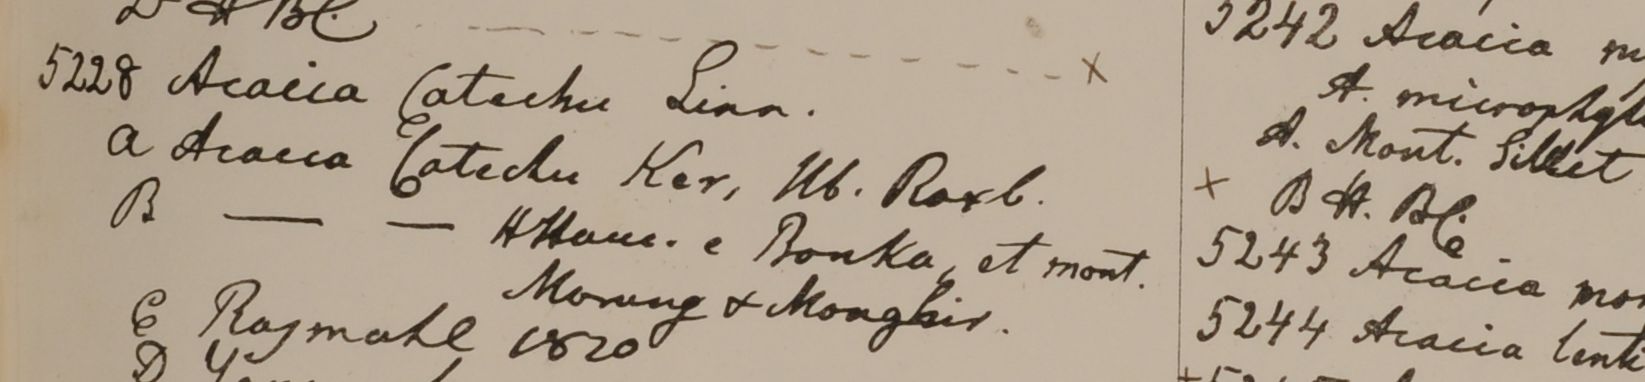 D H BC.
5228 Acacia Catechu Linn.
a Acacia Catechu Ker, Hb. Roxb.
B — — HHam. e Bonka, et mont.
Morung & Monghir.
C Rajmahl 1820
D
5242 Acacia
A. microphyll
A. Mont. Sillet
B H. BC.
5243 Acacia
5244 Acacia lenti